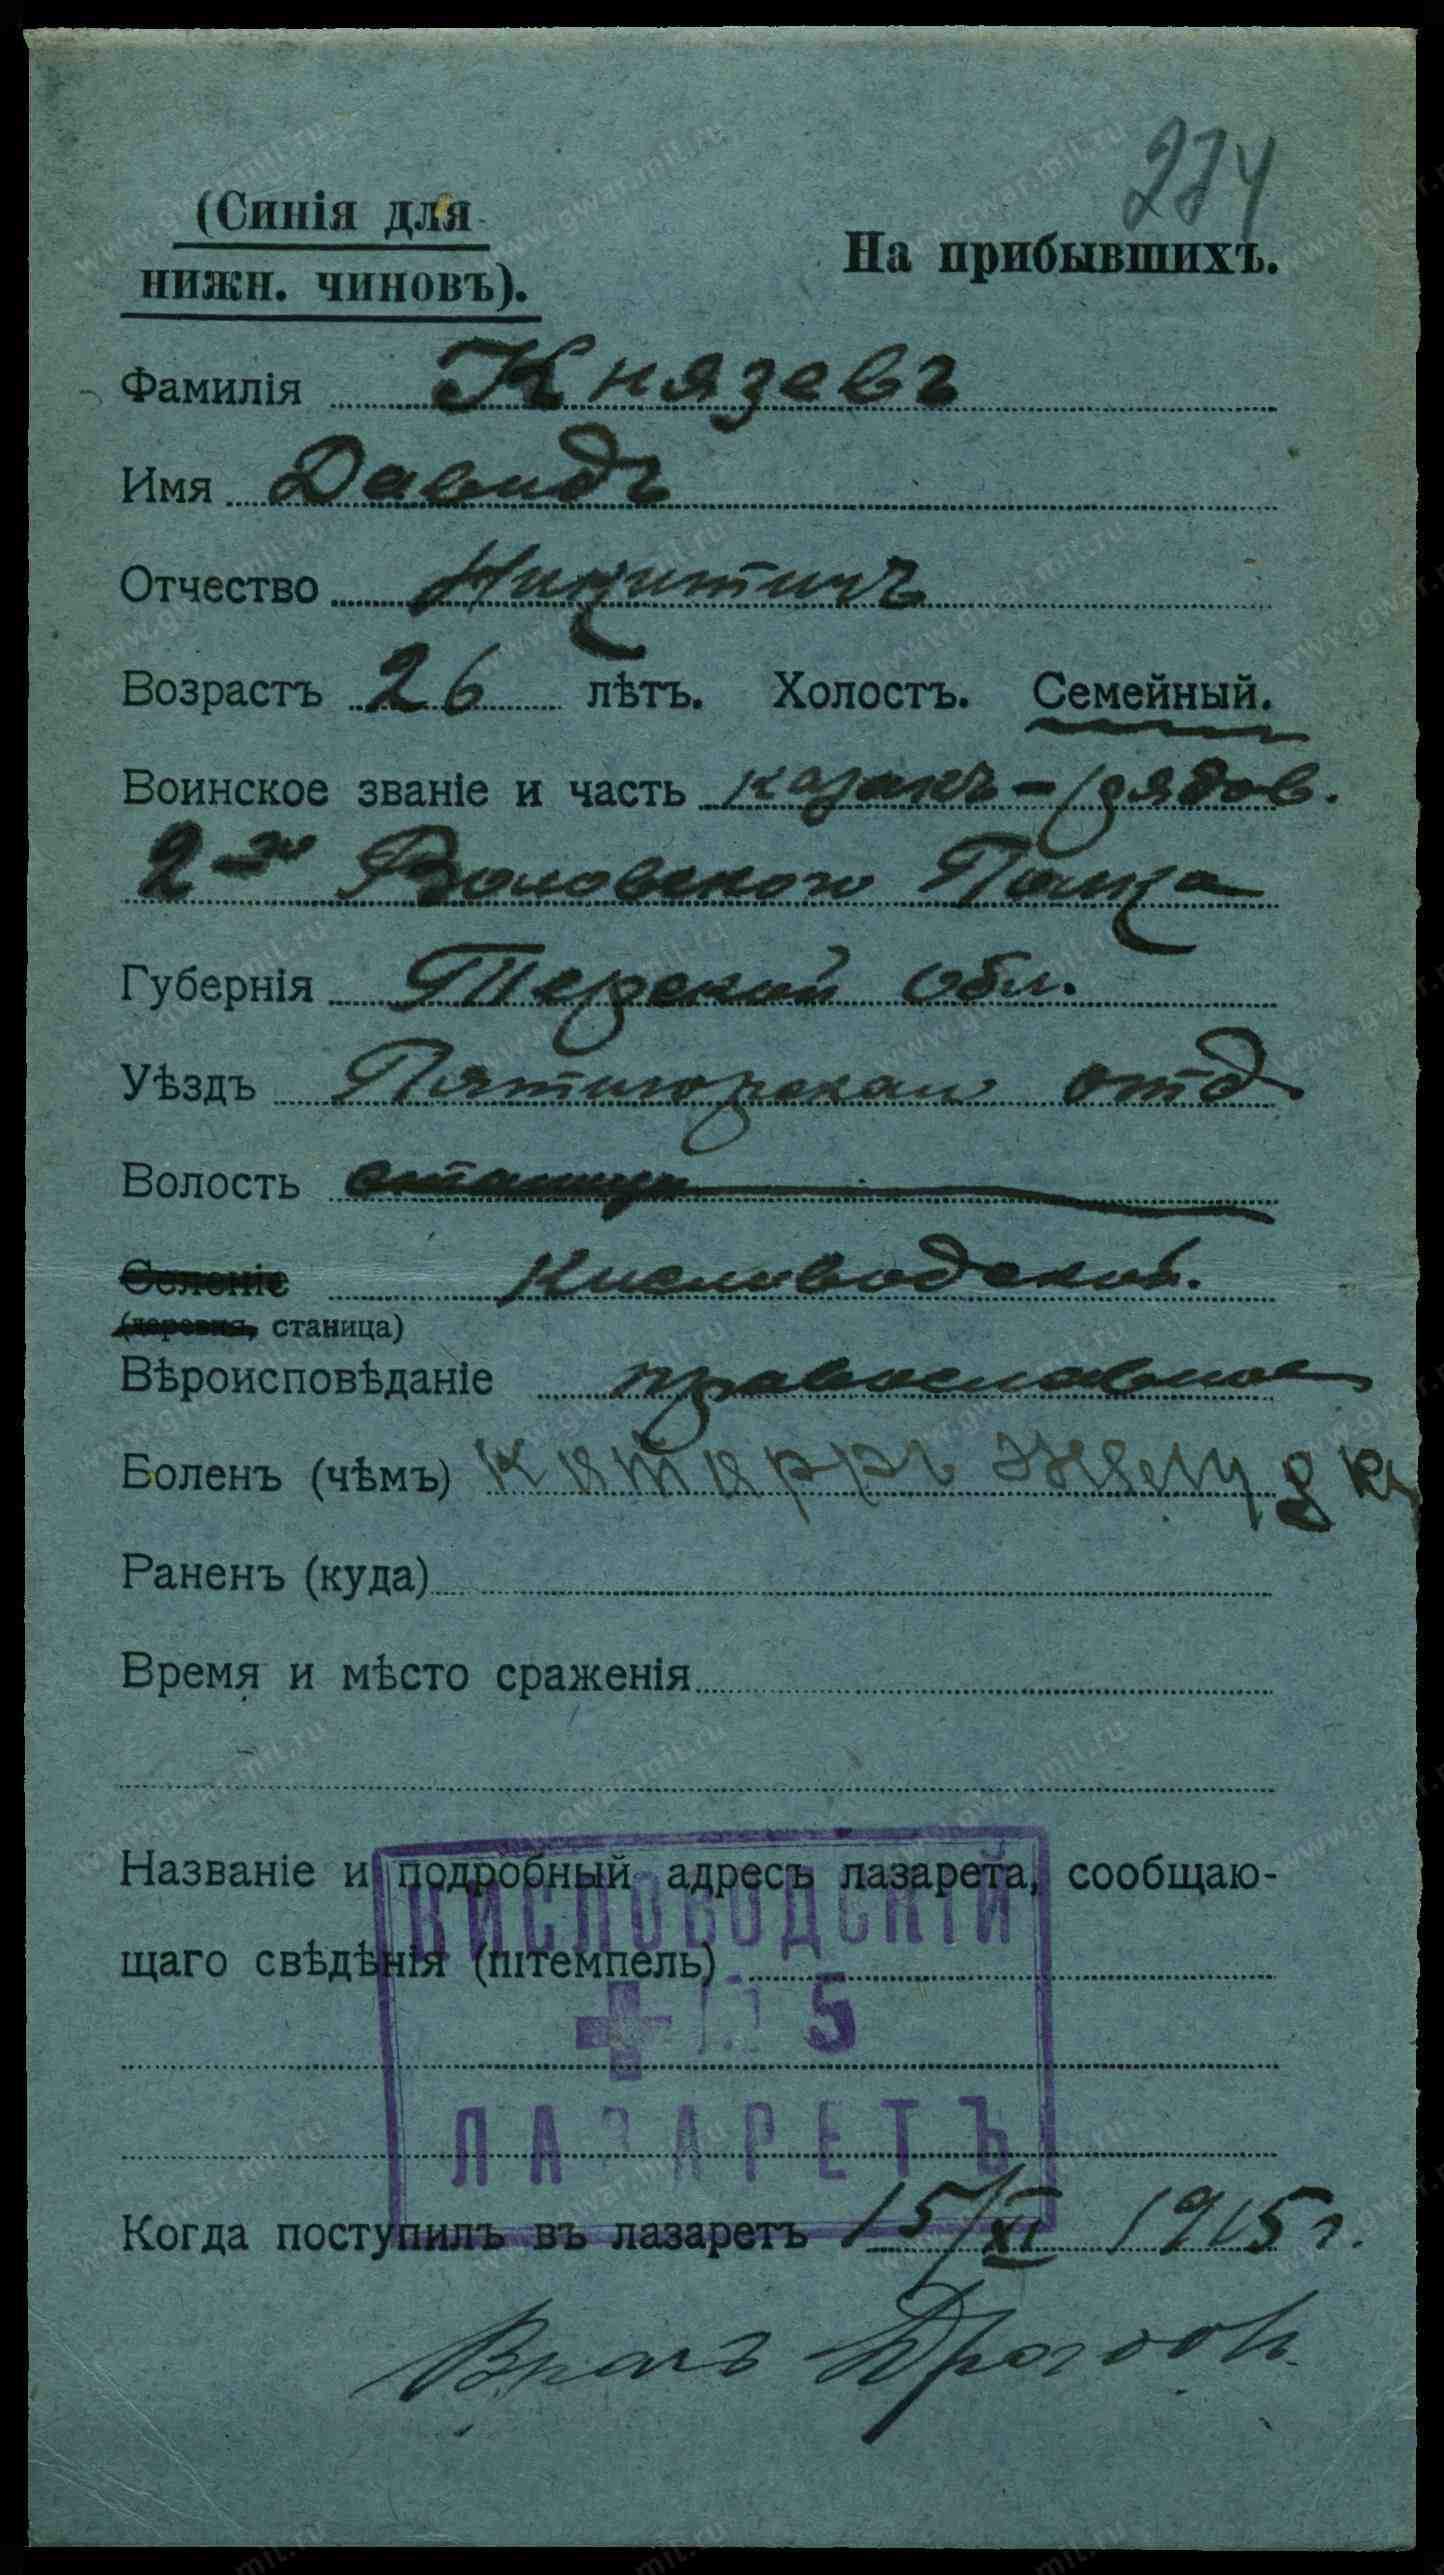 274
(Синія для
нижн. чиновъ).
На прибывшихъ.
Фамилія Князевъ
Имя Давидъ
Отчество Никитичъ
Возрастъ 26 лѣтъ. Холостъ. Семейный.
Воинское званіе и часть казакъ - рядов.
2-го Волгского Полка
Губернія Терской обл.
Уѣздъ Пятигорскаго отд
Волость станица
Селеніе Кисловодской.
(деревня, станица)
Вѣроисповѣданіе православное
Боленъ (чѣмъ) катарръ желудка
Раненъ (куда)
Время и мѣсто сраженія
Названіе и подробный адресъ лазарета, сообщаю-
щаго свѣдѣнія (штемпель)
КИСЛОВОДСКІЙ
5
ЛАЗАРЕТЪ
Когда поступилъ въ лазаретъ 15/XI 1915 г.
Врачъ